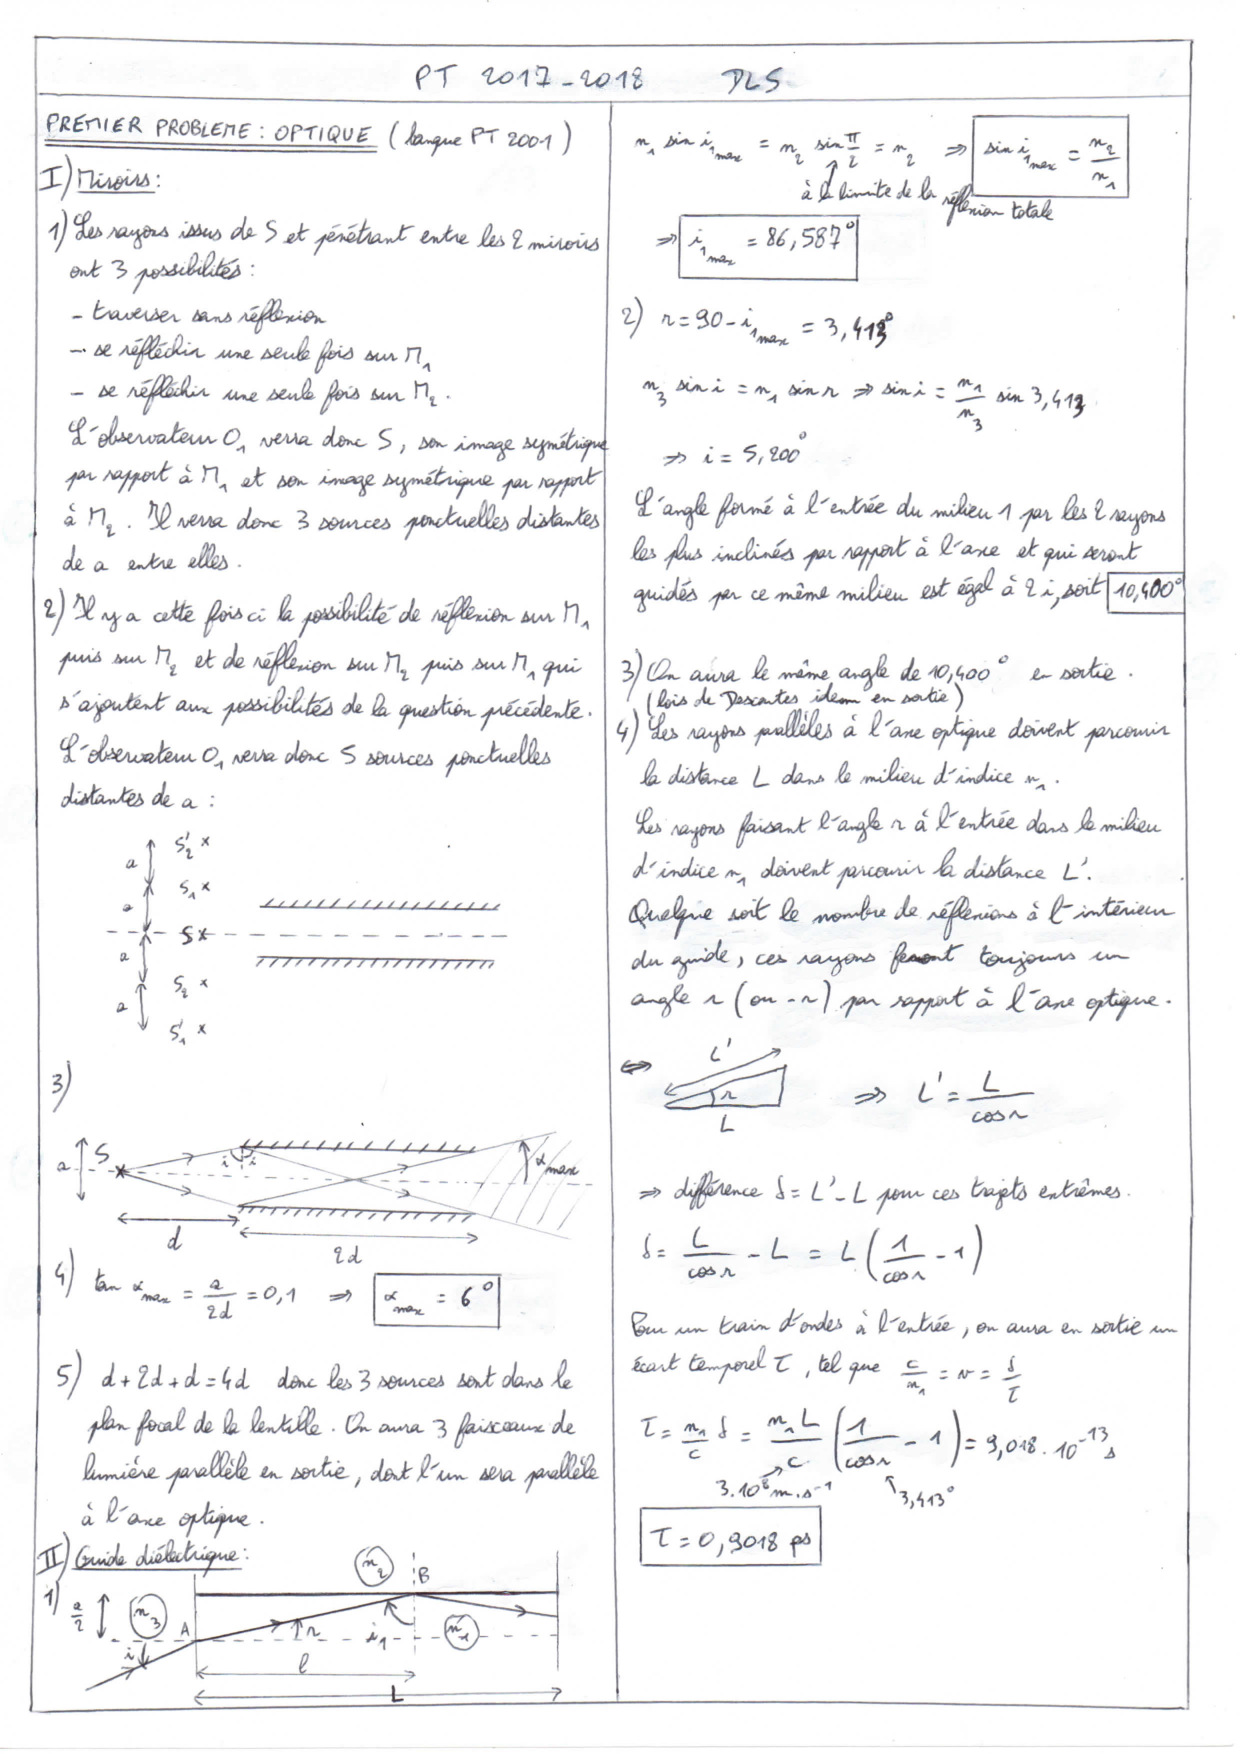 PT 2017-2018 DLS
PREMIER PROBLEME : OPTIQUE (banque PT 2001)
I) Miroirs :
1) Les rayons issus de S et pénétrant entre les 2 miroirs
ont 3 possibilités :
- traverser sans réflexion
- se réfléchir une seule fois sur M₁
- se réfléchir une seule fois sur M₂.
L'observateur O₁ verra donc S, son image symétrique
par rapport à M₁ et son image symétrique par rapport
à M₂. Il verra donc 3 sources ponctuelles distantes
de a entre elles.
2) Il y a cette fois ci la possibilité de réflexion sur M₁
puis sur M₂ et de réflexion sur M₂ puis sur M₁ qui
s'ajoutent aux possibilités de la question précédente.
L'observateur O₁ verra donc 5 sources ponctuelles
distantes de a :
a S'₂ x
a S₁ x
S x
a S₂ x
a S'₁ x
3)
a S i i α max
d 2d
4) tan α max = a/2d = 0,1 ⇒ α max = 6°
5) d + 2d + d = 4d donc les 3 sources sont dans le
plan focal de la lentille. On aura 3 faisceaux de
lumière parallèle en sortie, dont l'un sera parallèle
à l'axe optique.
II) Guide diélectrique :
1) a/2 n₃ A i r n₂ B i₁ n₁
l
L
n₁ sin i₁max = n₂ sin π/2 = n₂ ⇒ sin i₁max = n₂/n₁
à la limite de la réflexion totale
⇒ i₁max = 86,587°
2) r = 90 - i₁max = 3,413°
n₃ sin i = n₁ sin r ⇒ sin i = n₁/n₃ sin 3,413
⇒ i = 5,200°
L'angle formé à l'entrée du milieu 1 par les 2 rayons
les plus inclinés par rapport à l'axe et qui seront
guidés par ce même milieu est égal à 2 i, soit 10,400°
3) On aura le même angle de 10,400° en sortie.
(lois de Descartes idem en sortie)
4) Les rayons parallèles à l'axe optique doivent parcourir
la distance L dans le milieu d'indice n₁.
Les rayons faisant l'angle r à l'entrée dans le milieu
d'indice n₁ doivent parcourir la distance L'.
Quelque soit le nombre de réflexions à l'intérieur
du guide, ces rayons feront toujours un
angle r (ou -r) par rapport à l'axe optique.
⇔ L' r L ⇒ L' = L/cos r
⇒ différence δ = L' - L pour ces trajets extrêmes.
δ = L/cos r - L = L (1/cos r - 1)
Pour un train d'ondes à l'entrée, on aura en sortie un
écart temporel τ, tel que c/n₁ = v = δ/τ
τ = n₁/c δ = n₁L/c (1/cos r - 1) = 9,018.10⁻¹³ s
3.10⁸ m.s⁻¹ 3,413°
τ = 0,9018 ps